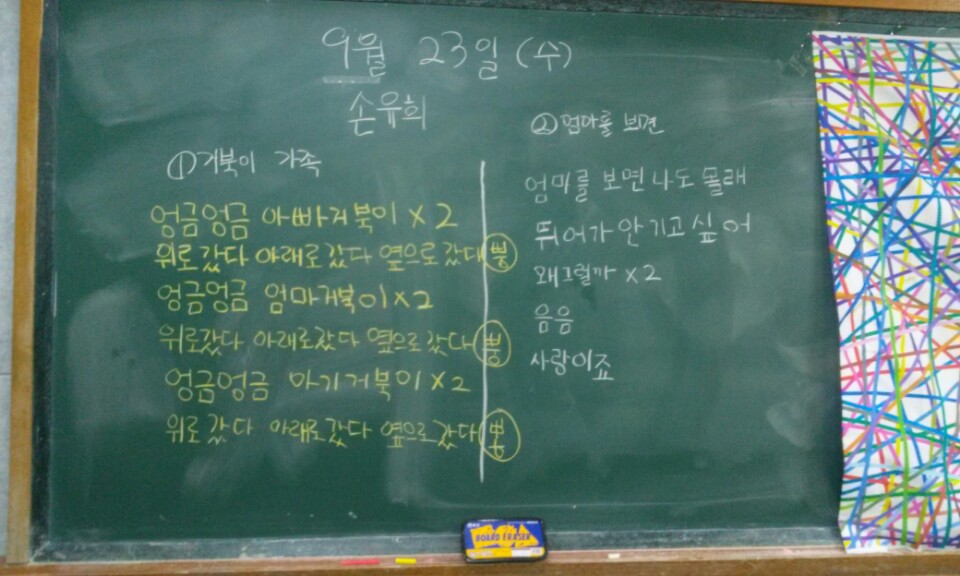 9월 23일 (수)
손유희
① 거북이 가족
엉금엉금 아빠거북이 x 2
위로갔다 아래로갔다 옆으로갔다 뿡
엉금엉금 엄마거북이 x 2
위로갔다 아래로갔다 옆으로갔다 뿡
엉금엉금 아기거북이 x 2
위로갔다 아래로갔다 옆으로갔다 뽕
② 엄마를 보면
엄마를 보면 나도 몰래
뛰어가 안기고 싶어
왜그럴까 x 2
음음
사랑이죠
BOARD ERASER